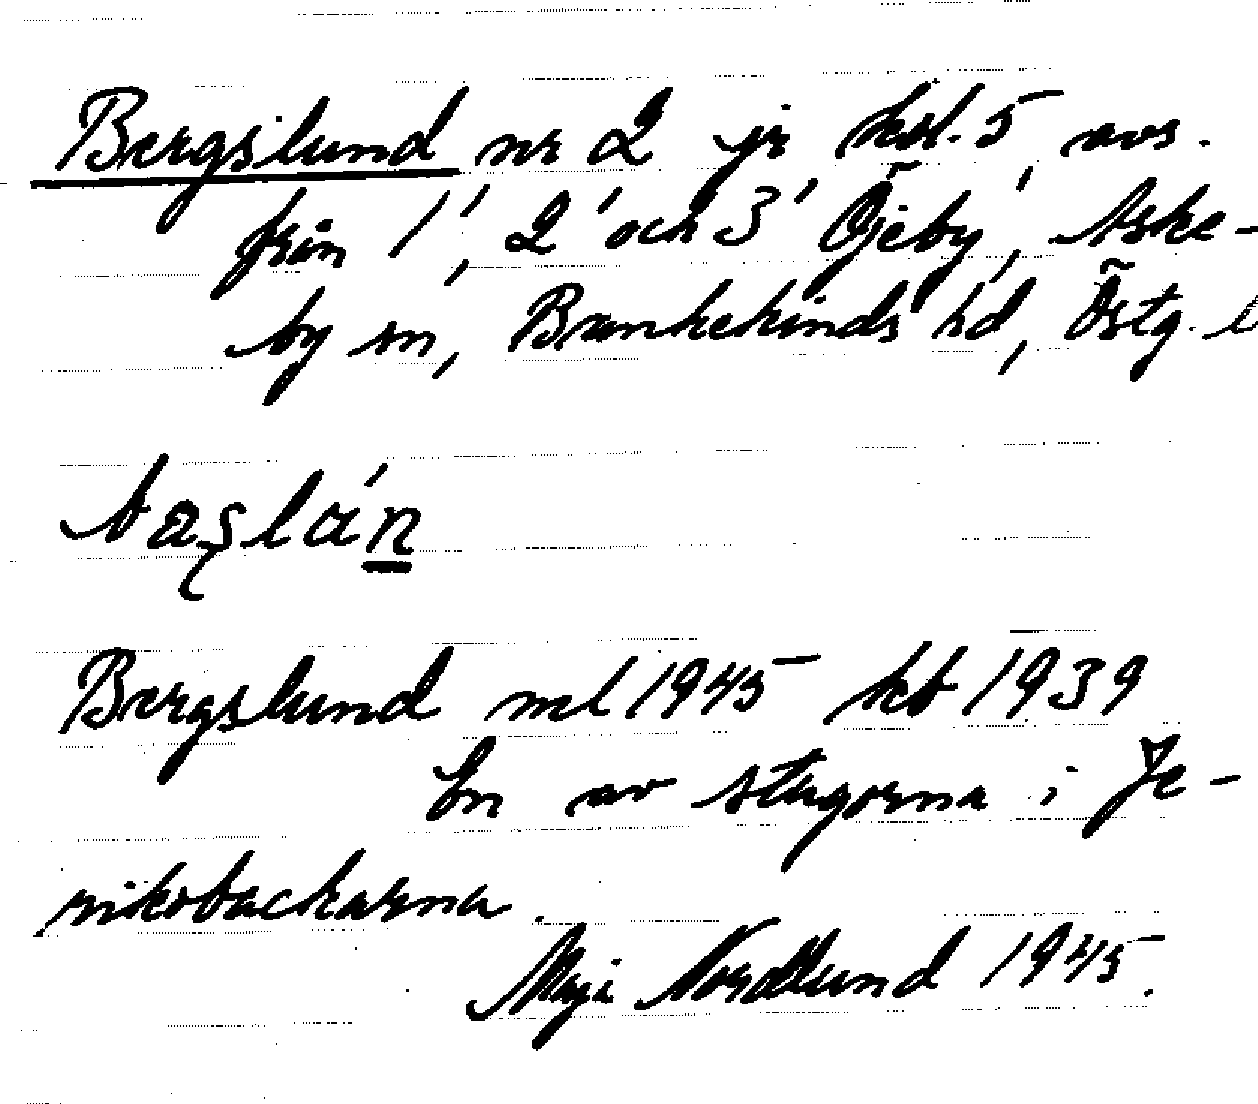 Bergslund nr 2 jr kvl. 5, avs.
från 1', 2' och 3' Öjeby, Aske-
by sn, Bankekinds hd, Östg. l
Bergslund ml 1945 kb 1939
En av stugorna i Je-
nikobackarna.
Maja Nordlund 1945.